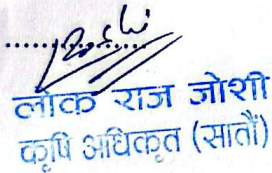 लोक राज जोशी
कृषि अधिकृत (सातौं)